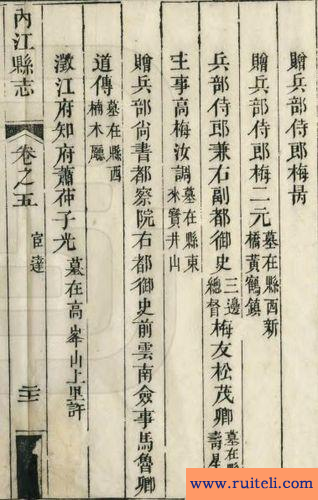 贈兵部侍郎梅
贈兵部侍郎梅二元 墓在縣西新
橋黃鶴鎮
兵部侍郎兼右副都御史 三邊
總督 梅友松茂卿 墓在縣
壽星
主事高梅汝調 墓在縣東
米寳井山
贈兵部尙書都察院右都御史前雲南僉事馬魯卿
道傳 墓在縣西
楠木廳
澂江府知府蕭仲子光 墓在高峯山上里許
內江縣志 卷之五 宦達
www.ruiteli.com